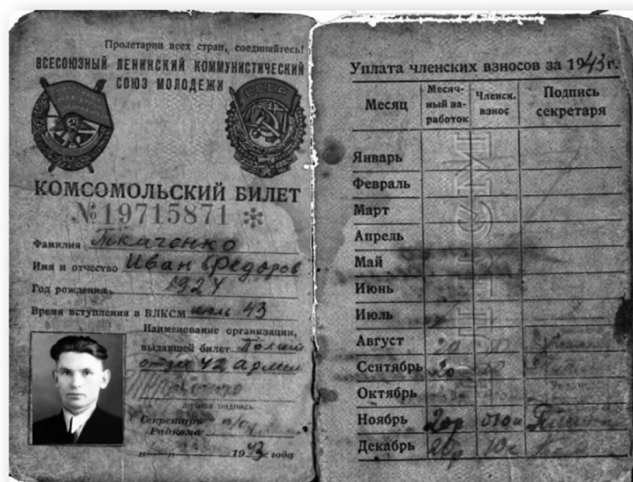 Пролетарии всех стран, соединяйтесь!
ВСЕСОЮЗНЫЙ ЛЕНИНСКИЙ КОММУНИСТИЧЕСКИЙ
СОЮЗ МОЛОДЕЖИ
СССР
КОМСОМОЛЬСКИЙ БИЛЕТ
№ 19715871 *
Фамилия Ткаченко
Имя и отчество Иван Федоров
Год рождения 1924
Время вступления в ВЛКСМ 43
Наименование организации,
выдавшей билет Полит
отдел 42 Армии
личная подпись
Секретарь
Райкома
1943 года
Уплата членских взносов за 1943 г.
Месяц
Месяч-
ный за-
работок
Членск.
взнос
Подпись
секретаря
Январь
Февраль
Март
Апрель
Май
Июнь
Июль
Август
Сентябрь 20
Октябрь
Ноябрь
Декабрь
ВЛКСМ